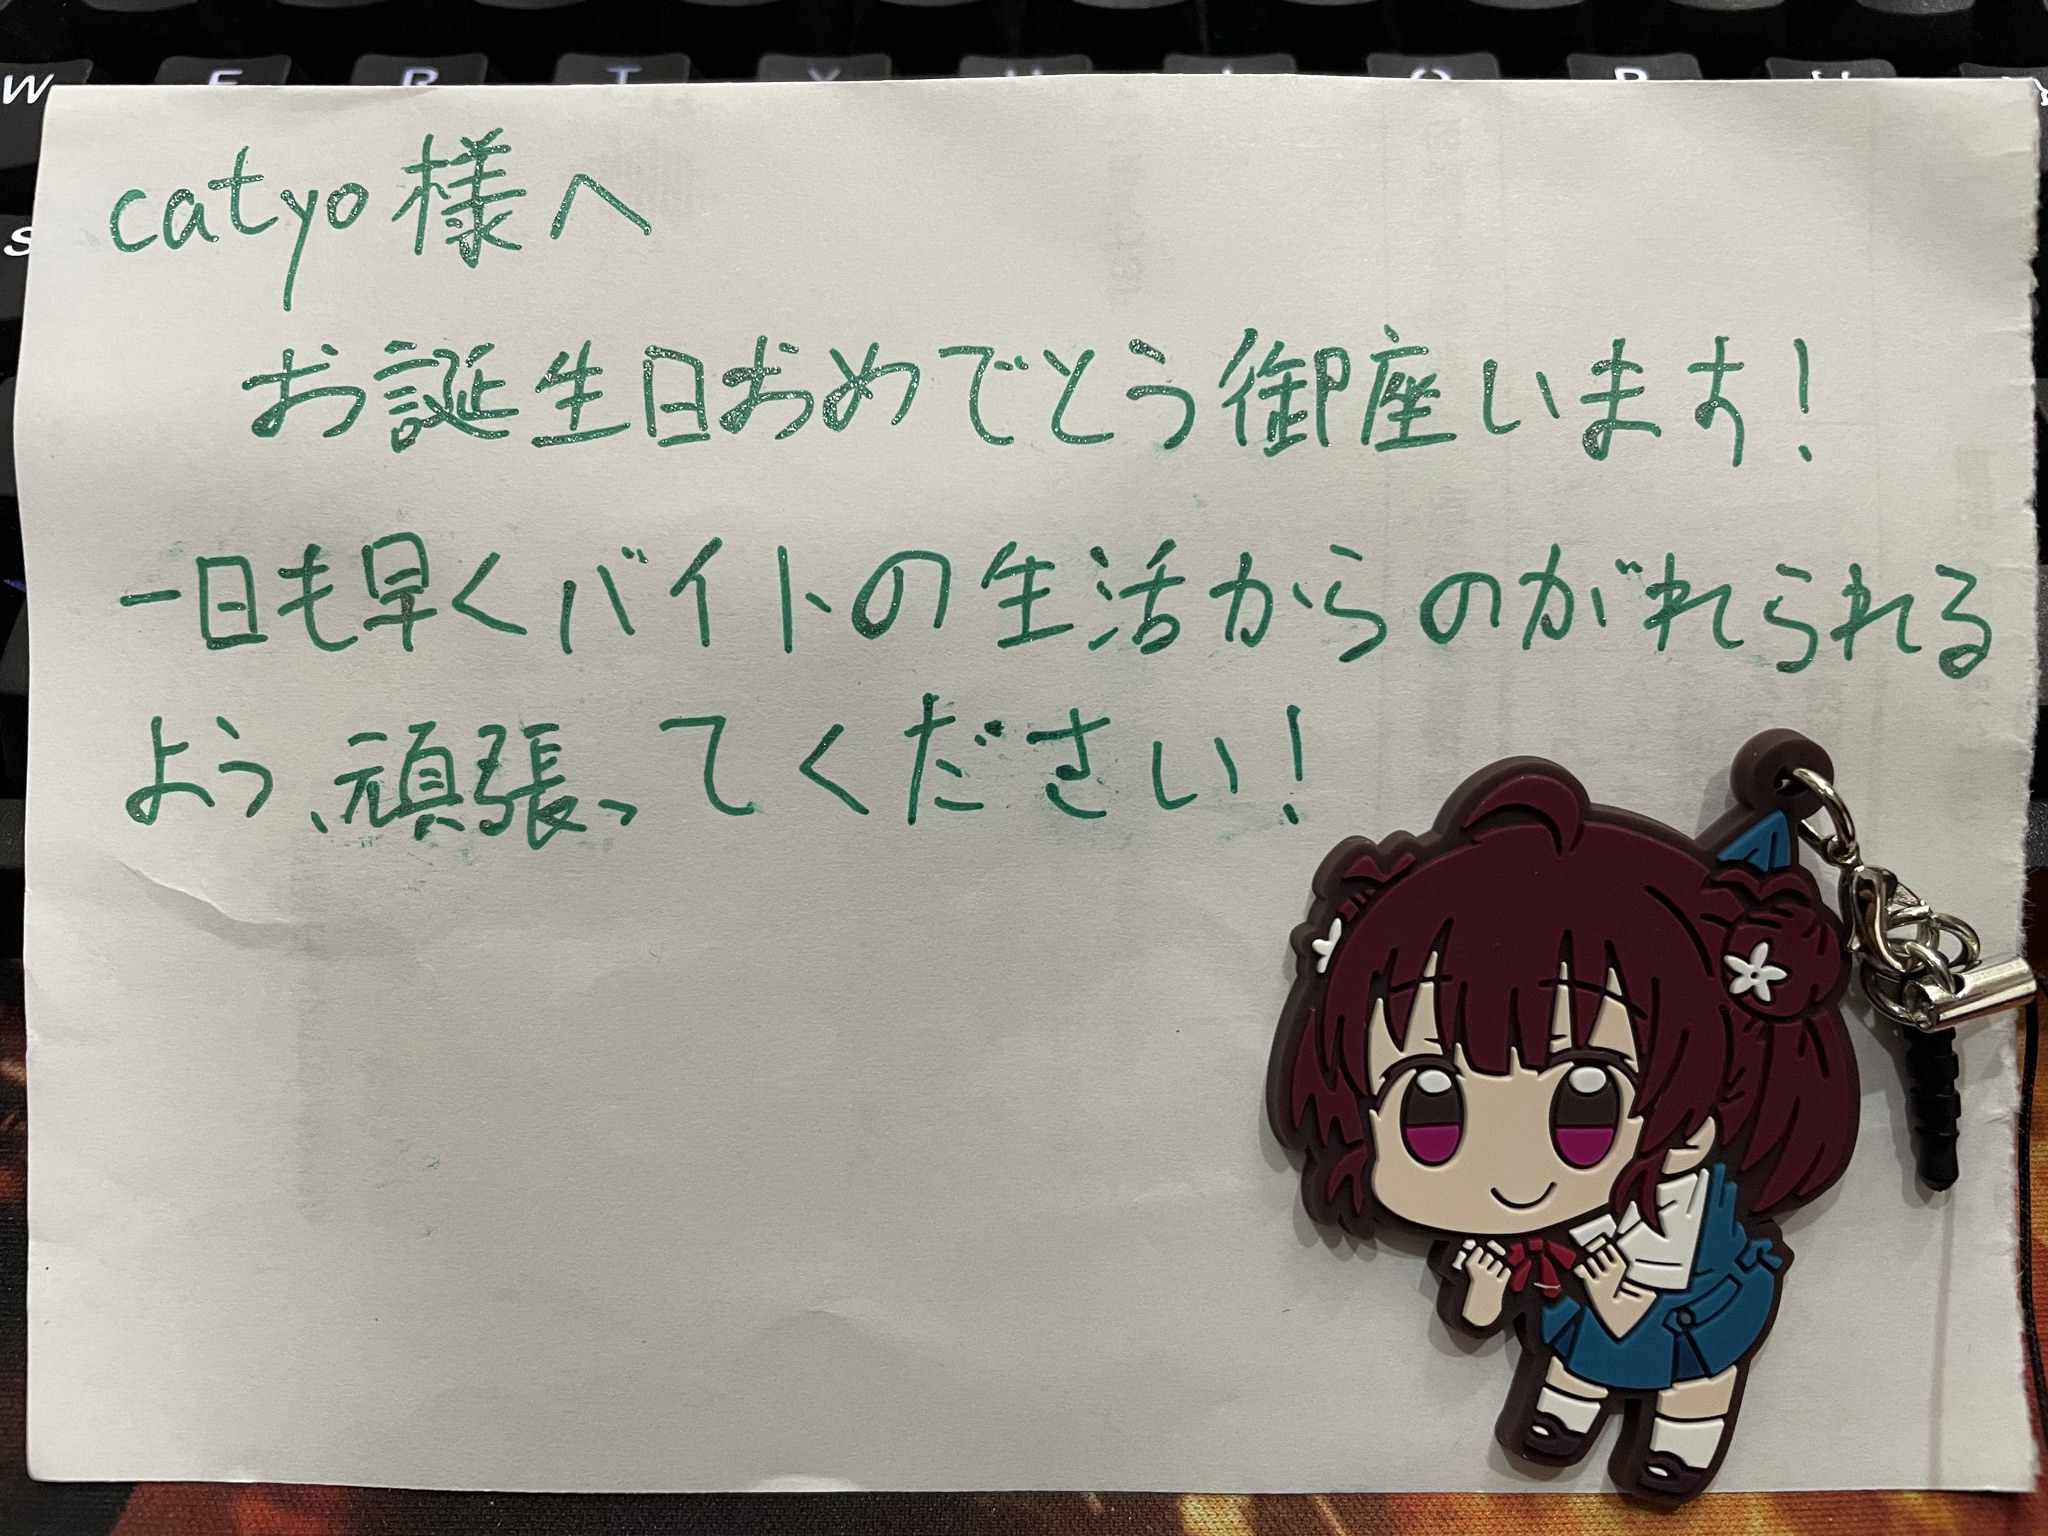 catyo様へ
お誕生日おめでとう御座います!
一日も早くバイトの生活からのがれられる
よう、頑張ってください!
W
S